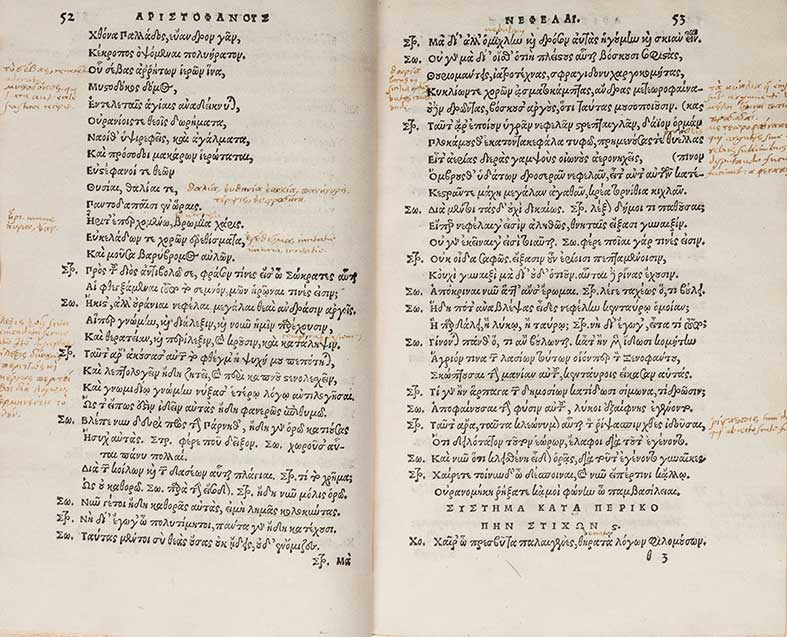 52 ΑΡΙΣΤΟΦΑΝΟΥΣ
Χθόνα Παλλάδος, εὔανδρον γᾶν,
Κέκροπος ὀψόμεναι πολυήρατον.
Οὗ σέβας ἀρρήτων ἱερῶν ἵνα,
Μυστοδόκος δόμος,
Ἐν τελεταῖς ἁγίαις ἀναδείκνυται,
Οὐρανίοις τε θεοῖς δωρήματα,
Ναοί θ' ὑψιρεφεῖς, καὶ ἀγάλματα,
Καὶ πρόσοδοι μακάρων ἱερώταται,
Εὐστέφανοί τε θεῶν
Θυσίαι, θαλίαι τε,
Παντοδαπαῖσιν ὥραις.
Ἦρί τ' ἐπερχομένῳ, Βρωμία χάρις.
Εὐκελάδων τε χορῶν ἐρεθίσματα,
Καὶ μοῦσα βαρύβρομος αὐλῶν.
Στρ. Πρὸς τοῦ Διὸς ἀντιβολῶ σε, φράσον τίνες εἰσὶν ὦ Σώκρατες αὗται
Αἱ φθεγξάμεναι τοῦτο τὸ σεμνόν, μῶν ἡρῷναι τινές εἰσιν;
Σω. Ἥκιστ', ἀλλ' οὐράνιαι νεφέλαι μεγάλαι θεαὶ ἀνδράσιν ἀργοῖς.
Αἵπερ γνώμην, καὶ διάλεξιν, καὶ νοῦν ἡμῖν παρέχουσιν,
Καὶ τερατείαν, καὶ περίλεξιν, καὶ κροῦσιν, καὶ κατάληψιν.
Στρ. Ταῦτ' ἄρ' ἀκούσασ' αὐτῶν τὸ φθέγμ' ἡ ψυχή μου πεπότηται,
Καὶ λεπτολογεῖν ἤδη ζητεῖ, καὶ περὶ καπνοῦ στενολεσχεῖν,
Καὶ γνωμιδίῳ γνώμην νύξασ' ἑτέρῳ λόγῳ ἀντιλογῆσαι.
Ὥστ' εἴ πως ἔστιν ἰδεῖν αὐτὰς ἤδη φανερῶς ἐπιθυμῶ.
Σω. Βλέπε νῦν δευρὶ πρὸς τὴν Πάρνηθ', ἤδη γὰρ ὁρῶ κατιούσας
Ἡσυχῇ αὐτάς. Στρ. φέρε ποῦ δεῖξον. Σω. χωροῦσ' αὗται
πάνυ πολλαί.
Διὰ τῶν κοίλων καὶ τῶν δασέων αὗται πλάγιαι. Στρ. τί τὸ χρῆμα;
Ὡς οὐ καθορῶ. Σω. παρὰ τὴν εἴσοδον. Στρ. ἤδη νυνὶ μόλις ὁρῶ.
Σω. Νῦν γέ τοι ἤδη καθορᾷς αὐτάς, εἰ μὴ λημᾷς κολοκύνταις.
Στρ. Νὴ Δί' ἔγωγ' ὦ πολυτίμητοι, πάντα γὰρ ἤδη κατέχουσι.
Σω. Ταύτας μέντοι σὺ θεὰς οὔσας οὐκ ᾔδης, οὐδ' ἐνόμιζες.
Στρ. Μὰ
ΝΕΦΕΛΑΙ. 53
Στρ. Μὰ Δί' ἀλλ' ὀμίχλην καὶ δρόσον αὐτὰς ἡγούμην καὶ σκιὰν εἶναι.
Σω. Οὐ γὰρ μὰ Δί' οἶσθ' ὁτιὴ πλείστους αὗται βόσκουσι σοφιστάς,
Θουριομάντεις, ἰατροτέχνας, σφραγιδονυχαργοκομήτας,
Κυκλίων τε χορῶν ἀσματοκάμπτας, ἄνδρας μετεωροφένακας
Οὐδὲν δρῶντας, βόσκουσ' ἀργούς, ὅτι ταύτας μουσοποιοῦσιν.
Στρ. Ταῦτ' ἄρ' ἐποίουν ὑγρᾶν νεφελᾶν στρεπταιγλᾶν, δάϊον ὁρμάν
Πλοκάμους θ' ἑκατογκεφάλα τυφῶ, πρημαινούσας τε θυέλλας
Εἶτ' ἀερίας διερὰς γαμψοὺς οἰωνοὺς ἀερονηχεῖς,
Ὄμβρους θ' ὑδάτων δροσερᾶν νεφελᾶν, εἶτ' ἀντ' αὐτῶν κατέπινον
Κεστρᾶν τεμάχη μεγαλᾶν ἀγαθᾶν, κρέα τ' ὀρνίθεια κιχλᾶν.
Σω. Διὰ μέντοι τάσδ' οὐχὶ δικαίως. Στρ. λέξον δή μοι τί παθοῦσαι;
Εἴπερ νεφέλαι γ' εἰσὶν ἀληθῶς, θνηταῖς εἴξασι γυναιξίν.
Οὐ γὰρ ἐκεῖναί γ' εἰσὶ τοιαῦται. Σω. φέρε ποῖαι γάρ τινές εἰσιν.
Στρ. Οὐκ οἶδα σαφῶς. εἴξασιν δ' οὖν ἐρίοισι πεπταμένοισιν,
Κοὐχὶ γυναιξὶ μὰ Δί' οὐδ' ὁτιοῦν. αὗται δὲ ῥῖνας ἔχουσιν.
Σω. Ἀπόκριναι νῦν ἅττ' ἂν ἔρωμαι. Στρ. λέγε ταχέως ὅ, τι βούλει.
Σω. Ἤδη ποτ' ἀναβλέψας εἶδες νεφέλην κενταύρῳ ὁμοίαν;
Ἢ παρδάλει, ἢ λύκῳ, ἢ ταύρῳ; Στρ. νὴ Δί' ἔγωγ', εἶτα τί τοῦτο;
Σω. Γίνονται πάνθ' ὅ, τι ἂν βούλωνται. κᾆτ' ἢν μὲν ἴδωσι κομήτην
Ἄγριόν τινα τῶν λασίων τούτων οἷόνπερ τὸν Ξενοφάντου,
Σκώπτουσαι τὴν μανίαν αὐτοῦ, κενταύροις εἴκασαν αὑτάς.
Στρ. Τί γὰρ ἢν ἅρπαγα τῶν δημοσίων κατίδωσι σίμωνα, τί δρῶσιν;
Σω. Ἀποφαίνουσαι τὴν φύσιν αὐτοῦ, λύκοι ἐξαίφνης ἐγένοντο.
Στρ. Ταῦτ' ἄρα, ταῦτα κλεώνυμον αὗται τὸν ῥίψασπιν χθὲς ἰδοῦσαι,
Ὅτι δειλότατον τοῦτον ἑώρων, ἔλαφοι διὰ τοῦτ' ἐγένοντο.
Σω. Καὶ νῦν ὅτι κλεισθένη εἶδον ὁρᾷς, διὰ τοῦτ' ἐγένοντο γυναῖκες.
Στρ. Χαίρετε τοίνυν ὦ δέσποιναι, καὶ νῦν εἴπερ τινὶ κἄλλῳ.
Οὐρανομήκη ῥήξατε κἀμοὶ φωνὴν ὦ παμβασίλειαι.
ΣΥΣΤΗΜΑ ΚΑΤΑ ΠΕΡΙΚΟ
ΠΗΝ ΣΤΙΧΩΝ ς.
Χο. Χαῖρ' ὦ πρεσβῦτα παλαιγενές, θηρατὰ λόγων φιλομούσων.
θ 3